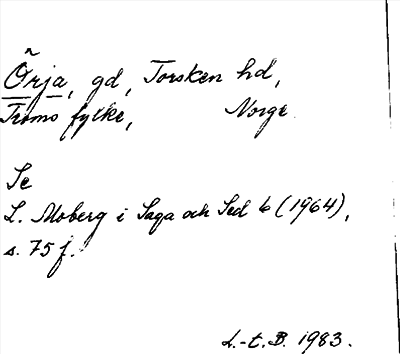 Õrja, gd, Torsken hd,
Troms fylke, Norge
Se
L. Moberg i Saga och Sed 6 (1964),
s. 75 f.
L.-t. B. 1983.